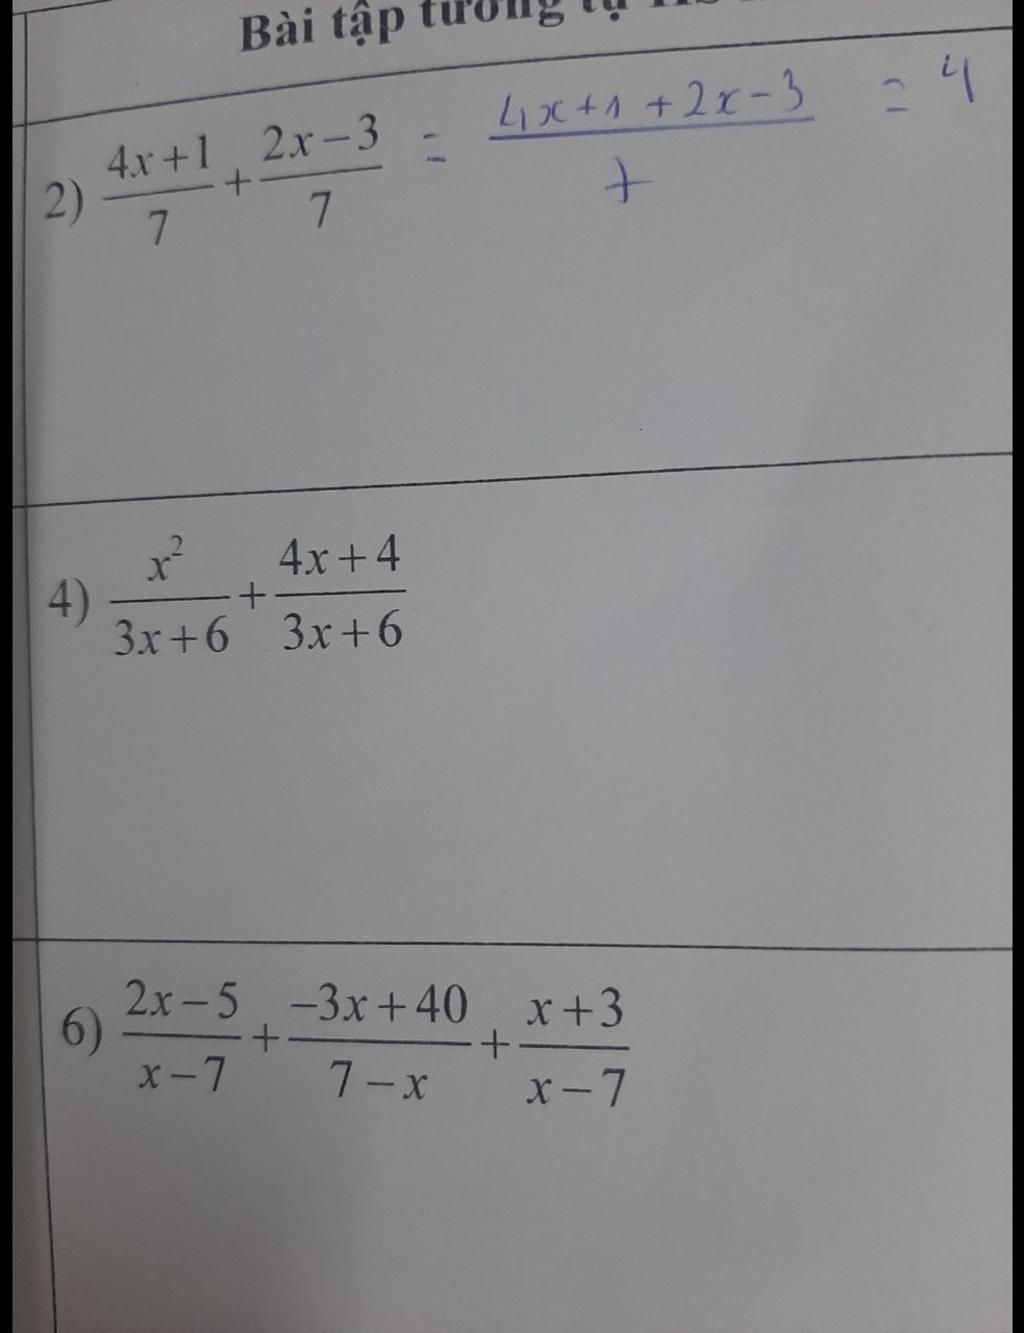 Bài tập tương tự
2) \frac{4x+1}{7} + \frac{2x-3}{7} = \frac{4x+1+2x-3}{7} = 4
4) \frac{x^2}{3x+6} + \frac{4x+4}{3x+6}
6) \frac{2x-5}{x-7} + \frac{-3x+40}{7-x} + \frac{x+3}{x-7}